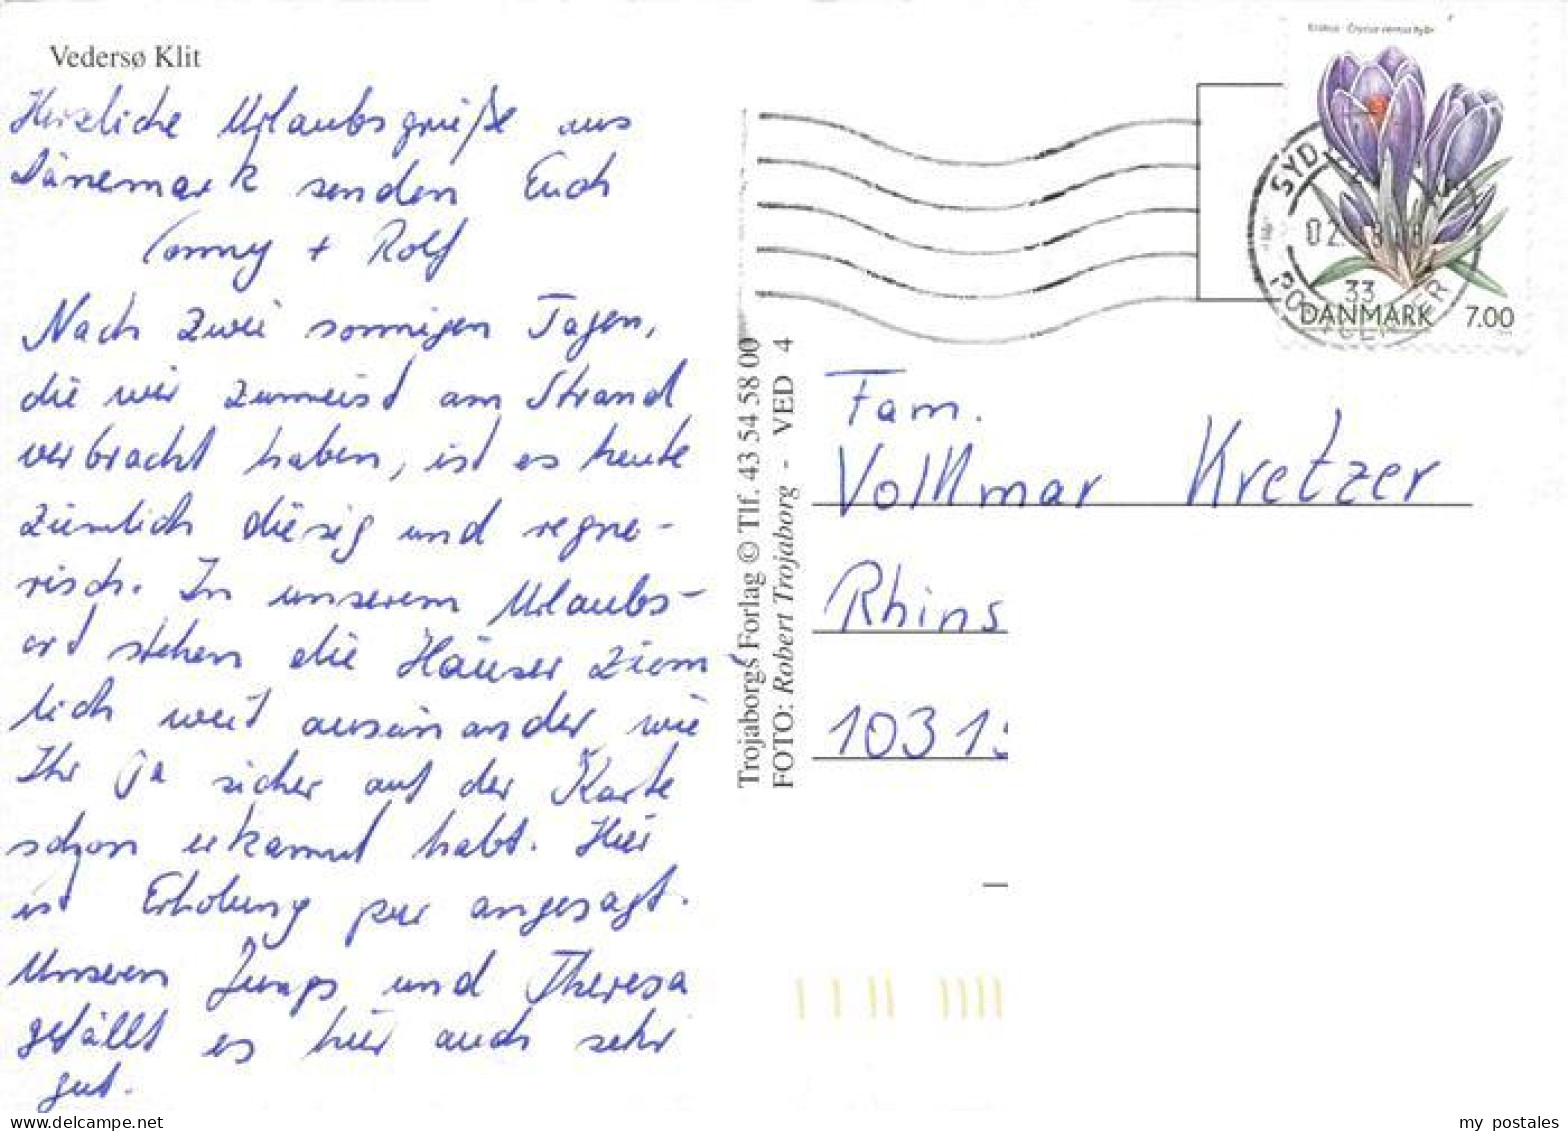 Vedersø Klit
Herzliche Urlaubsgrüße aus
Dänemark senden Euch
Conny + Rolf
Nach zwei sonnigen Tagen,
die wir zumeist am Strand
verbracht haben, ist es heute
ziemlich diesig und regne-
risch. In unserem Urlaubs-
ort stehen die Häuser ziem
lich weit auseinander wie
Ihr ja sicher auf der Karte
schon erkannt habt. Hier
ist Erholung pur angesagt.
Unseren Jungs und Theresa
gefällt es hier auch sehr
gut.
Trojaborgs Forlag © Tlf. 43 54 58 00
FOTO: Robert Trojaborg - VED 4
Krokus · Crocus vernus hybr
SYD
02.
33
POSTCENTER
DANMARK 7.00
Fam.
Volkmar Kretzer
Rhins
1031
www.delcampe.net
my_postales